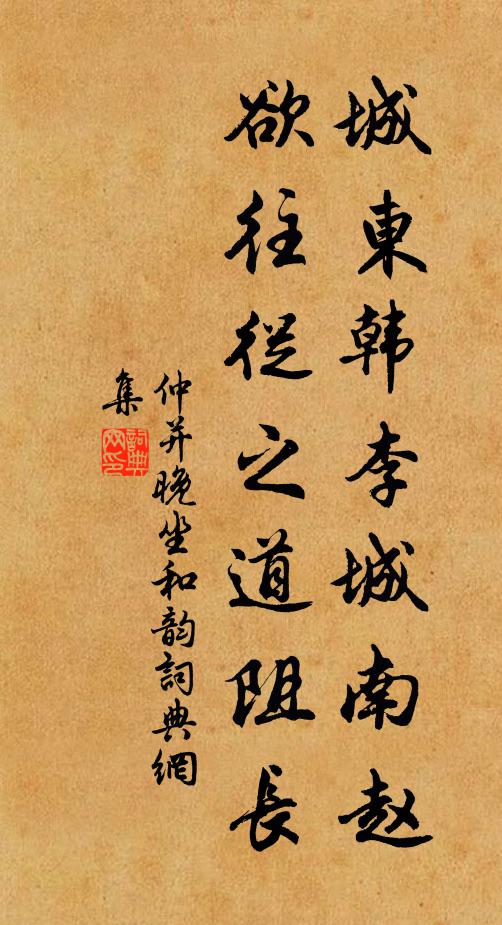 城東韩李城南赵
欲往從之道阻長
仲并晚坐和韵詞典網
集
詞典網印